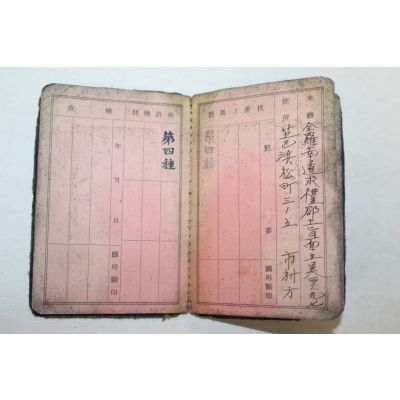 本籍
全羅南道求禮郡土旨面五美里九七
住所
芝區濱松町三ノ五 市村方
住所ノ異動
記事
廳府縣印
免許種別
第四種
檢査
年月日
廳府縣印